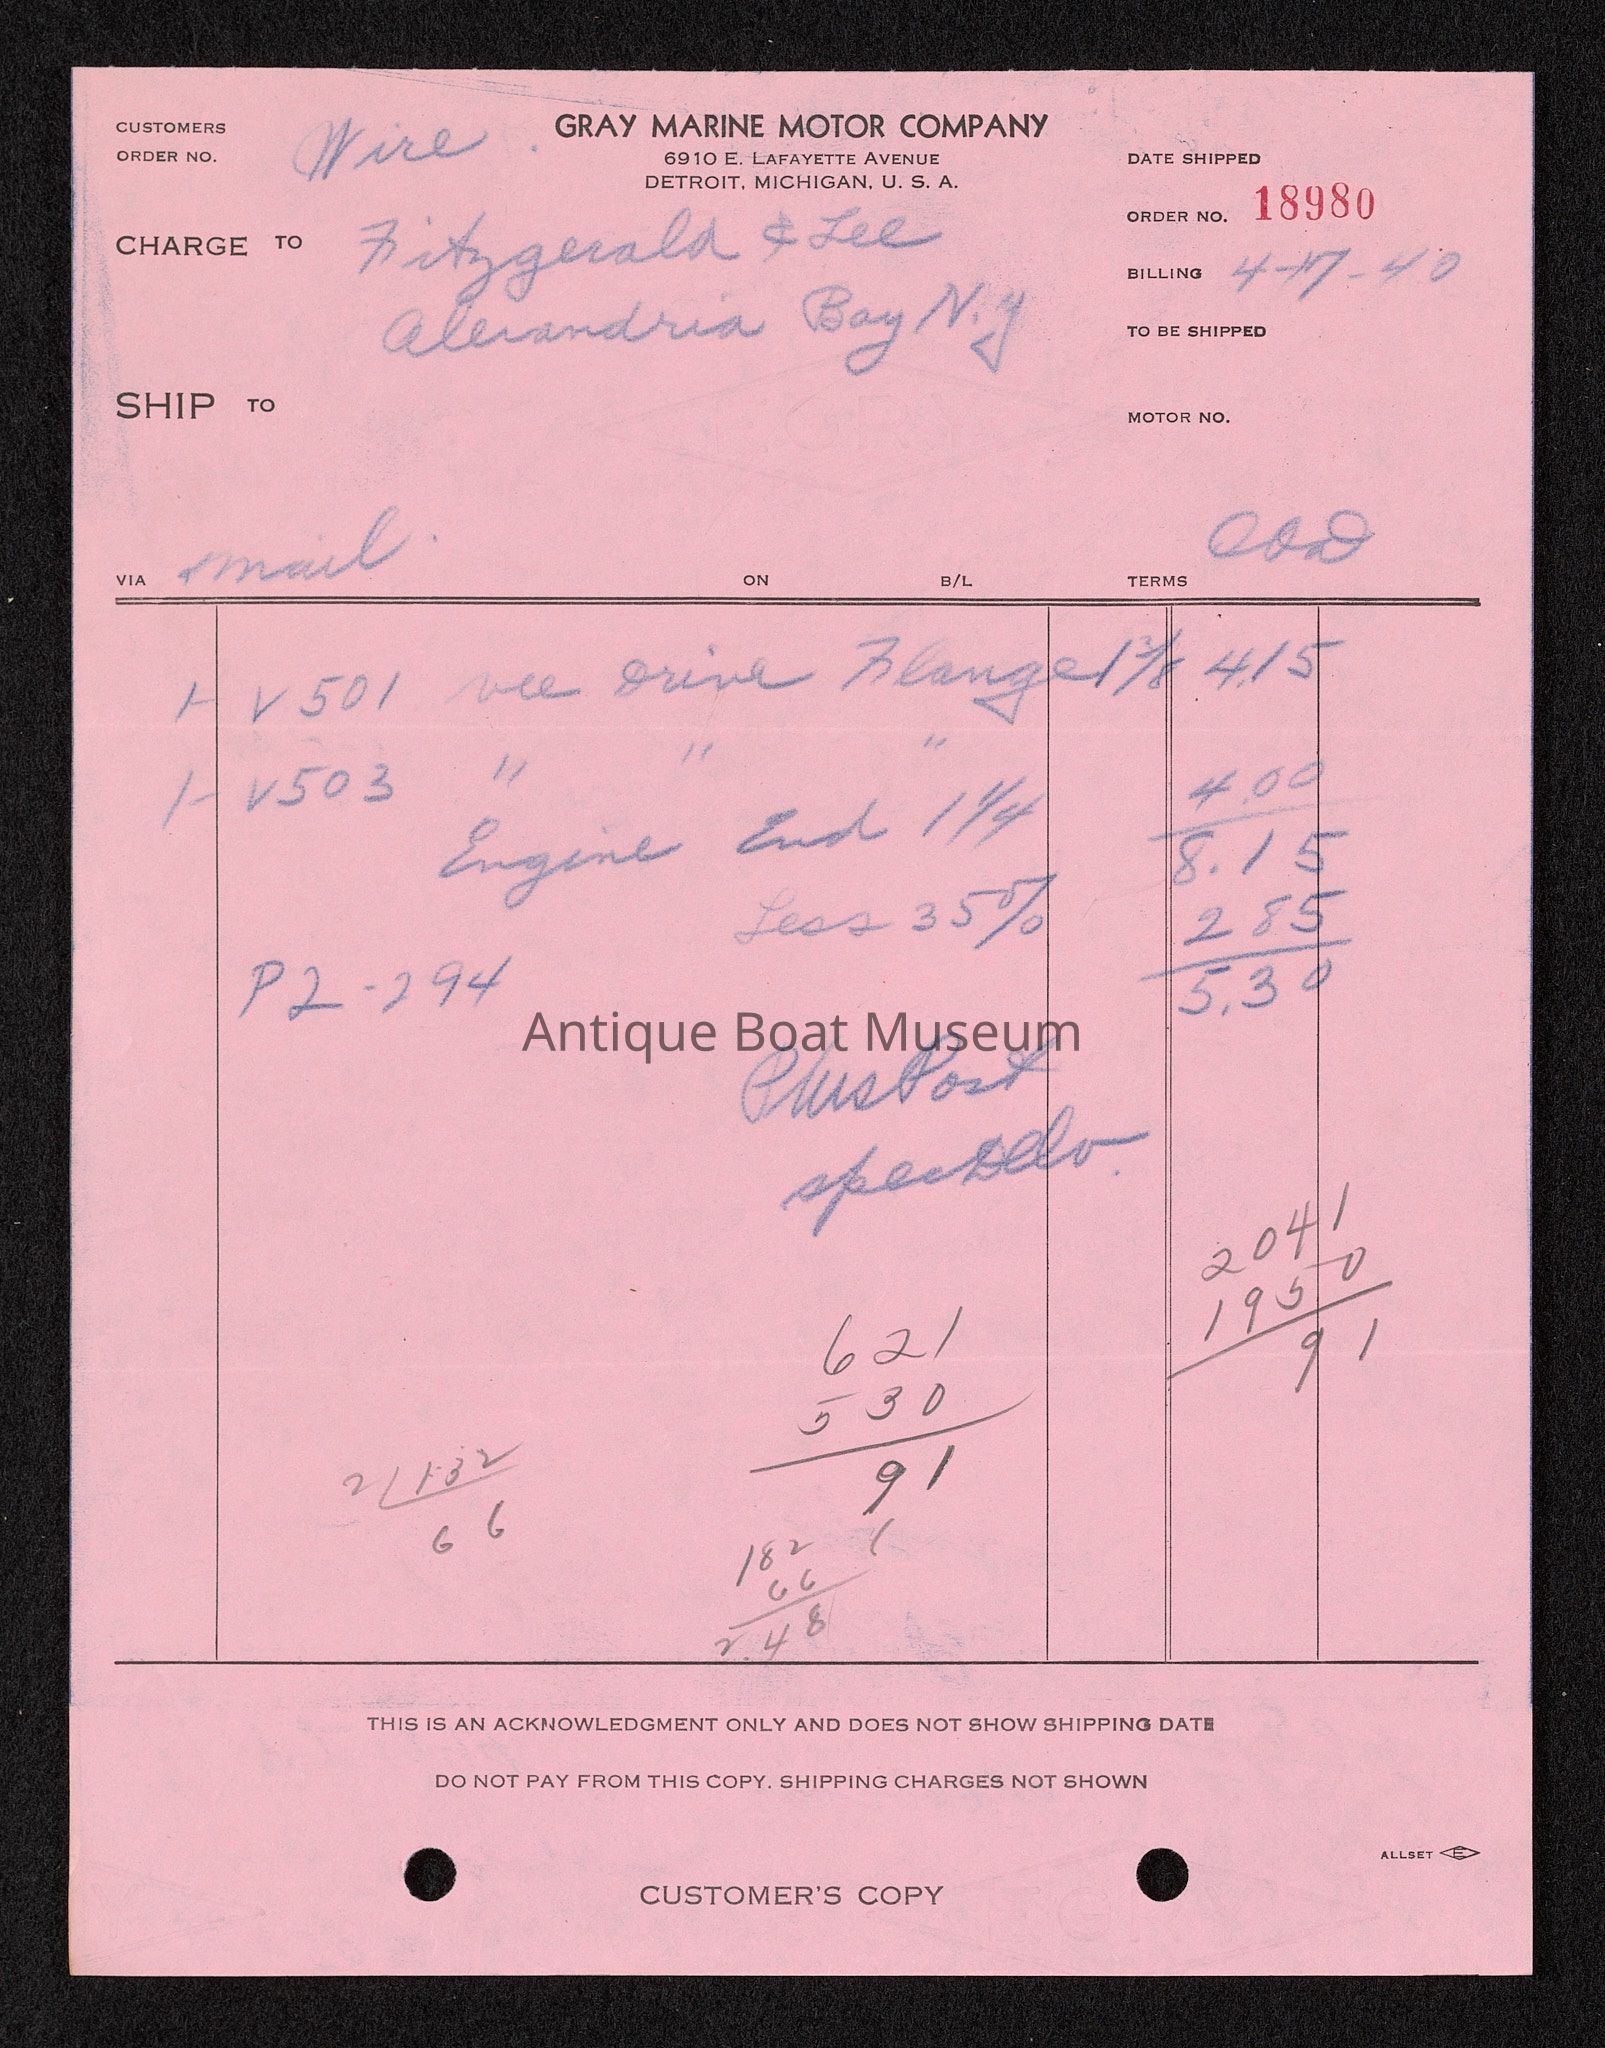 CUSTOMERS
ORDER NO. Wire
GRAY MARINE MOTOR COMPANY
6910 E. LAFAYETTE AVENUE
DETROIT, MICHIGAN, U. S. A.
DATE SHIPPED
ORDER NO. 18980
CHARGE TO Fitzgerald & Lee
Alexandria Bay N.Y
BILLING 4-17-40
TO BE SHIPPED
SHIP TO
MOTOR NO.
VIA mail. ON B/L TERMS COD
1- V501 vee Drive Flange 1 3/8 4.15
1- V503 " " " 4.00
Engine End 1 1/4 8.15
Less 35% 2 85
P2-294 5.30
Antique Boat Museum
Plus Post
spec Delv.
2041
1950
91
621
530
91
2/1.32
66
182
66
2.48
THIS IS AN ACKNOWLEDGMENT ONLY AND DOES NOT SHOW SHIPPING DATE
DO NOT PAY FROM THIS COPY. SHIPPING CHARGES NOT SHOWN
ALLSET E
CUSTOMER'S COPY